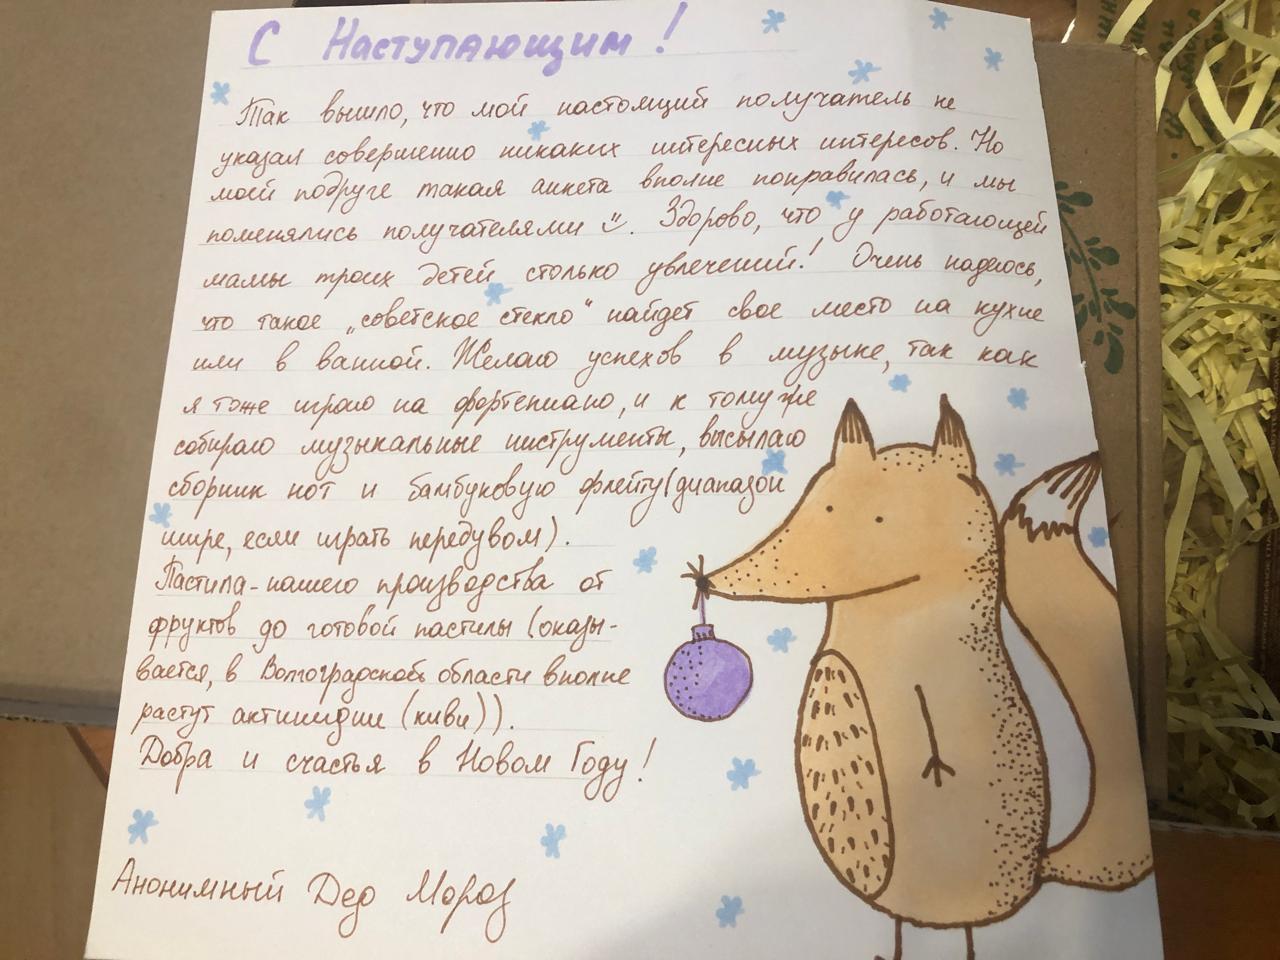 С Наступающим!
Так вышло, что мой настоящий получатель не
указал совершенно никаких интересных интересов. Но
моей подруге такая анкета вполне понравилась, и мы
поменялись получателями :). Здорово, что у работающей
мамы троих детей столько увлечений! Очень надеюсь,
что такое „советское стекло“ найдет свое место на кухне
или в ванной. Желаю успехов в музыке, так как
я тоже играю на фортепиано, и к тому же
собираю музыкальные инструменты, высылаю
сборник нот и бамбуковую флейту (диапазон
шире, если играть передувом).
Пастила - нашего производства от
фруктов до готовой пастилы (оказы-
вается, в Волгоградской области вполне
растут актинидии (киви)).
Добра и счастья в Новом Году!
Анонимный Дед Мороз